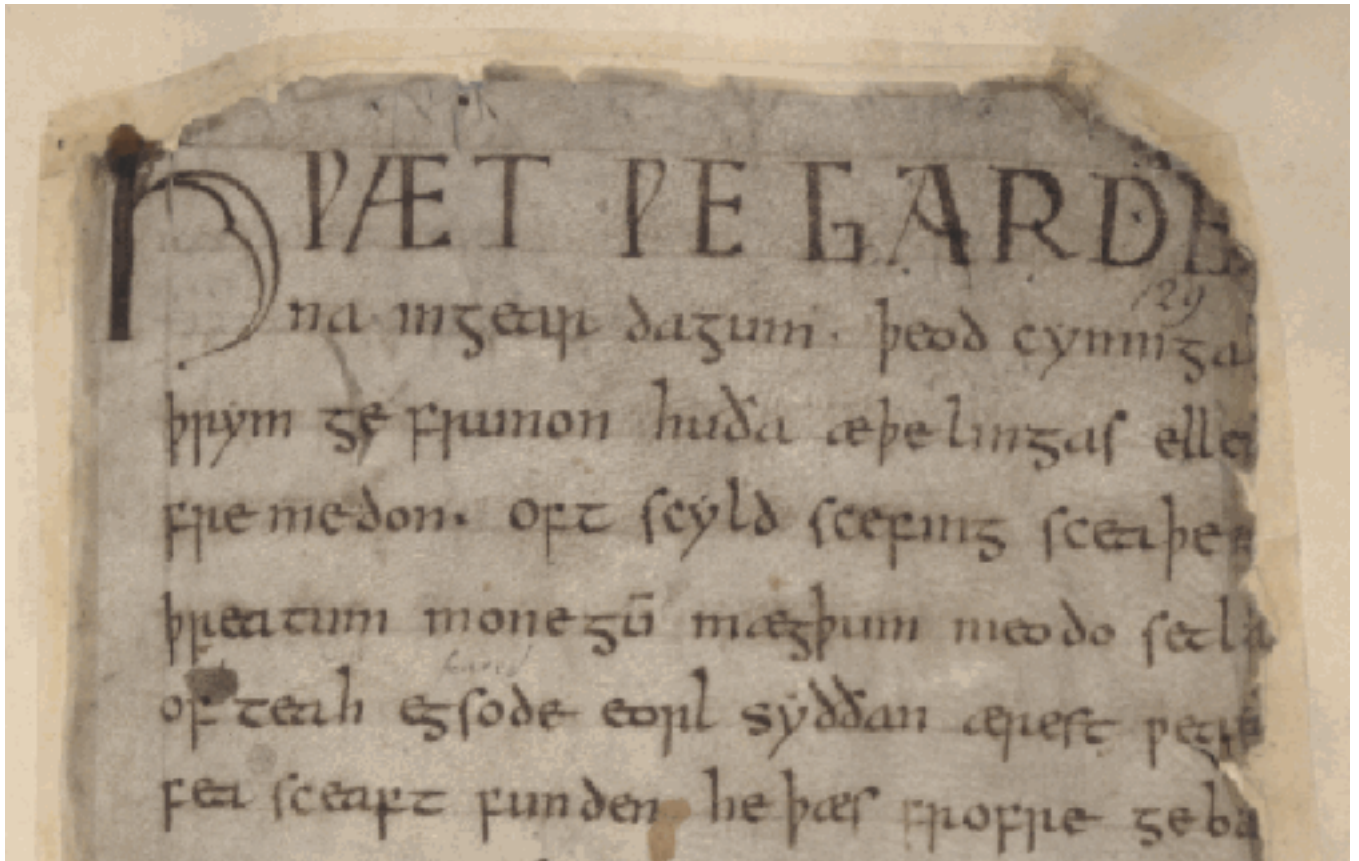 HǷÆT ǷE GARDE
129
na ingear dagum . þeod cyninga
þrym ge frunon huða æþelingas elle
fremedon. oft scyld scefing sceaþe
þreatum monegū mægþum meodo setla
of teah egsode eorl syððan ærest ƿear
fea sceaft funden he þæs frofre geba